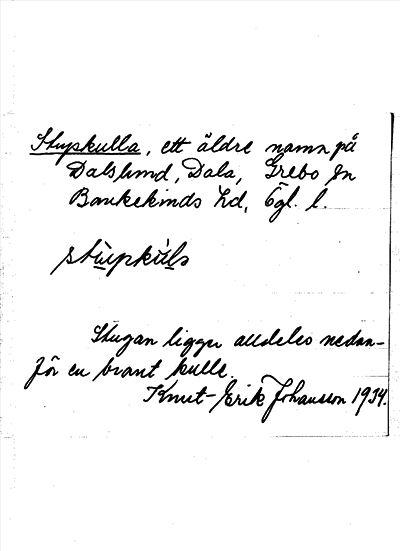 Stupkulla, ett äldre namn på
Dalslund, Dala, Grebo sn
Bankekinds hd, Ögl. l.
stùpkùls
Stugan ligger alldeles nedan-
för en brant kulle.
Knut-Erik Johansson 1934.